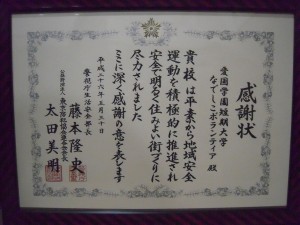 感謝状
愛国学園短期大学
なでしこボランティア 殿
貴校は平素から地域安全
運動を積極的に推進され
安全で明るく住みよい街づくりに
尽力されました
ここに深く感謝の意を表します
平成二十六年五月三十日
警視庁生活安全部長
藤本隆史
太田美明